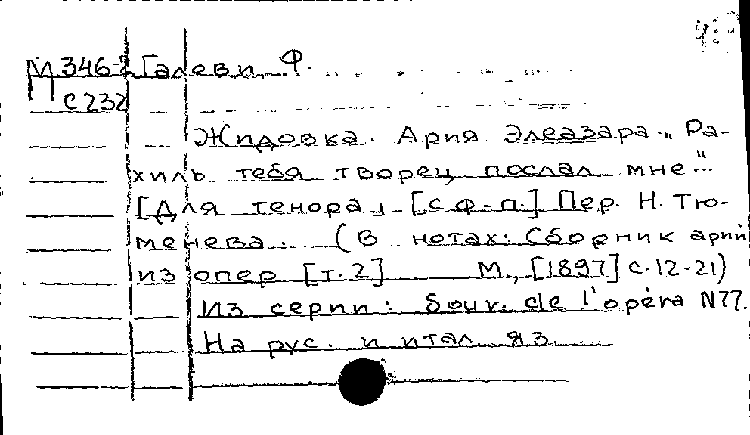 М 346-2 Галеви Ф.
С 232
Жидовка. Ария Элеазара „Ра-
хиль тебя творец послал мне..."
[Для тенора, [с ф-п.] Пер. Н. Тю-
менева. (В нотах: Сборник арий
из опер [т. 2] М., [1897] с. 12-21)
Из серии: Souv. de l'opéra N77.
На рус. и итал. яз.